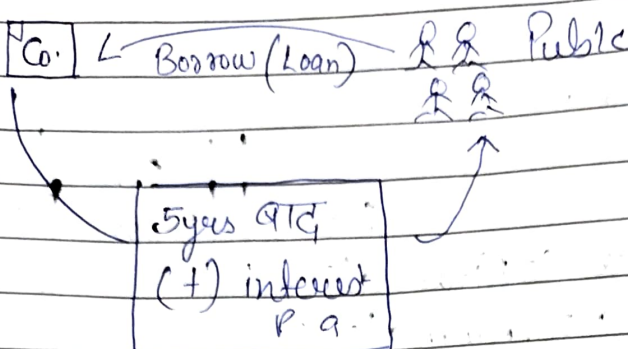 Co. Borrow (Loan) Public
5yrs बाद
(+) interest
P. a.